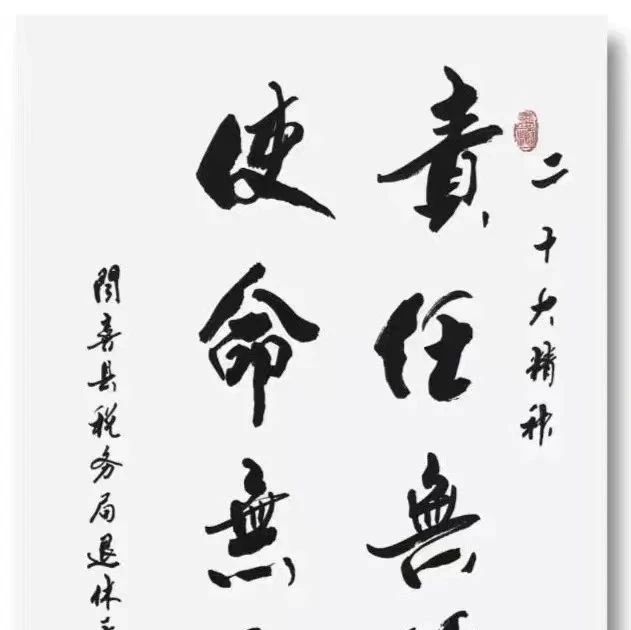 二十大精神
責任無
使命無
聞喜县税务局退休